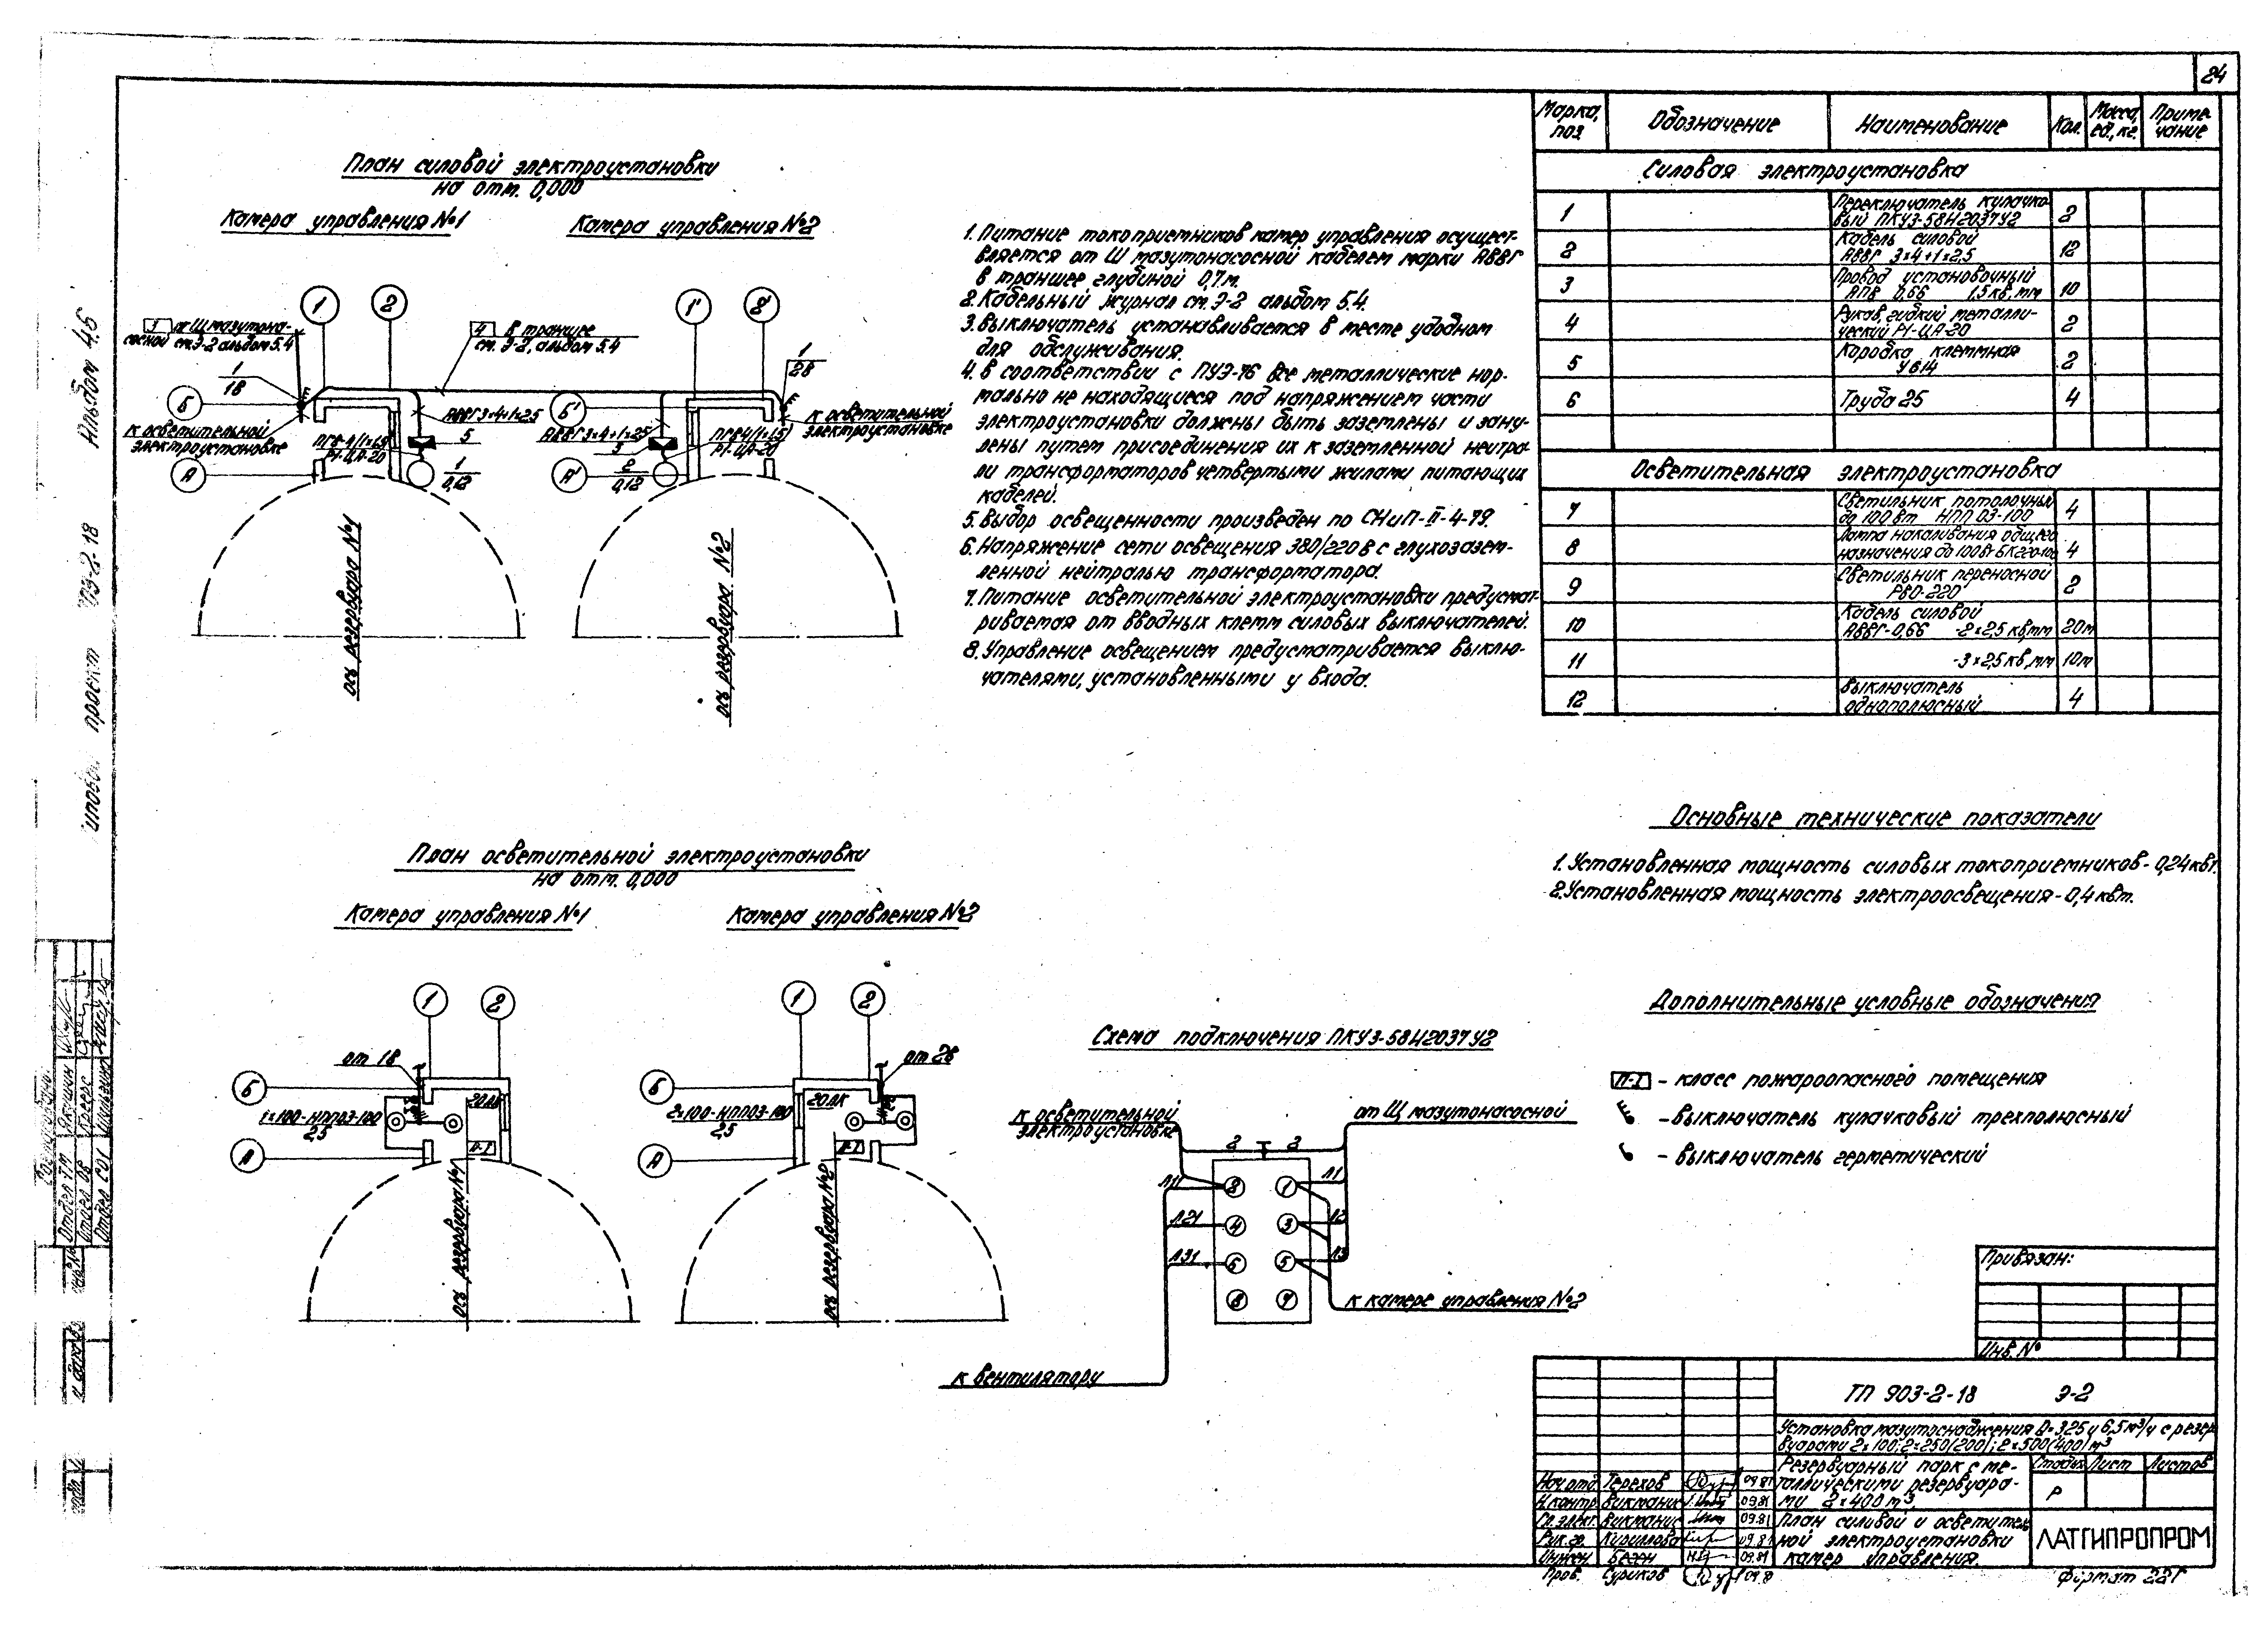 24
Альбом 4.5
проект 903-2-18
План силовой электроустановки
на отм. 0,000
Камера управления №1
Камера управления №2
1
2
1'
2'
3 от Щ мазутона-
сосной см. Э-2 альбом 5.4
4 в траншее
см. Э-2, альбом 5.4
1
1В
1
2В
Б
Б'
к осветительной
электроустановке
АВВГ 3×4+1×2,5
АВВГ 3×4+1×2,5
к осветительной
электроустановке
5
5
Р1-ЦА-20
Р1-ЦА-20
А
А'
1
0,12
2
0,12
ось резервуара №1
ось резервуара №2
1. Питание токоприемников камер управления осущест-
вляется от Щ мазутонасосной кабелем марки АВВГ
в траншее глубиной 0,7м.
2. Кабельный журнал см. Э-2 альбом 5.4.
3. Выключатель устанавливается в месте удобном
для обслуживания.
4. В соответствии с ПУЭ-76 все металлические нор-
мально не находящиеся под напряжением части
электроустановки должны быть заземлены и зану-
лены путем присоединения их к заземленной нейтра-
ли трансформаторов четвертыми жилами питающих
кабелей.
5. Выбор освещенности произведен по СНиП-II-4-79.
6. Напряжение сети освещения 380/220 в с глухозазем-
ленной нейтралью трансформатора.
7. Питание осветительной электроустановки предусмат-
ривается от вводных клемм силовых выключателей.
8. Управление освещением предусматривается выклю-
чателями, установленными у входа.
Марка, поз. Обозначение Наименование Кол. Масса, ед., кг. Приме-чание
Силовая электроустановка
1 Переключатель кулачко-
вый ПКУ3-58И2037У2 2
2 Кабель силовой
АВВГ 3×4+1×2,5 12
3 Провод установочный
АПВ 0,66 1,5 кв, мм 10
4 Рукав гибкий металли-
ческий Р1-ЦА-20 2
5 Коробка клеммная
У614 2
6 Труба 25 4
Осветительная электроустановка
7 Светильник потолочный
до 100 вт НПП 03-100 4
8 Лампа накаливания общего
назначения до 100вт БК220-100 4
9 Светильник переносной
РВО-220 2
10 Кабель силовой
АВВГ-0,66 -2×2,5 кв, мм 20м
11 -3×2,5 кв, мм 10м
12 Выключатель
однополюсный 4
Основные технические показатели
1. Установленная мощность силовых токоприемников - 0,24 квт.
2. Установленная мощность электроосвещения - 0,4 квт.
План осветительной электроустановки
на отм. 0,000
Камера управления №1
Камера управления №2
1
2
1
2
от 1В
от 2В
Б
Б
20ЛК
20ЛК
1×100-НПП03-100
2,5
2×100-НПП03-100
2,5
А
А
П-I
П-I
ось резервуара №1
ось резервуара №2
Схема подключения ПКУ3-58И2037У2
к осветительной
электроустановке
от Щ мазутонасосной
2 2
Л11 2 1 Л1
Л21 4 3 Л2
Л31 6 5 Л3
8 7
к камере управления №2
к вентилятору
Дополнительные условные обозначения
П-I - класс пожароопасного помещения
- выключатель кулачковый трехполюсный
- выключатель герметический
Привязан:
Инв. №
ТП 903-2-18 Э-2
Установка мазутоснабжения Q=3,25 и 6,5 м³/ч с резер-
вуарами 2×100; 2×250(200); 2×500(400) м³
Резервуарный парк с ме-
таллическими резервуара-
ми 2×400 м³.
Стадия Лист Листов
Р
План силовой и осветитель-
ной электроустановки
камер управления.
ЛАТГИПРОПРОМ
Нач. отд. Терехов 09.81
Н. контр. Викманис 09.81
Гл. элект. Викманис 09.81
Рук. гр. Кириллова 09.81
Инжен. Беген 09.81
Пров. Суриков
Формат 22Г
Отдел ТМ Якушин
Отдел ОВ Креерс
Отдел СО1